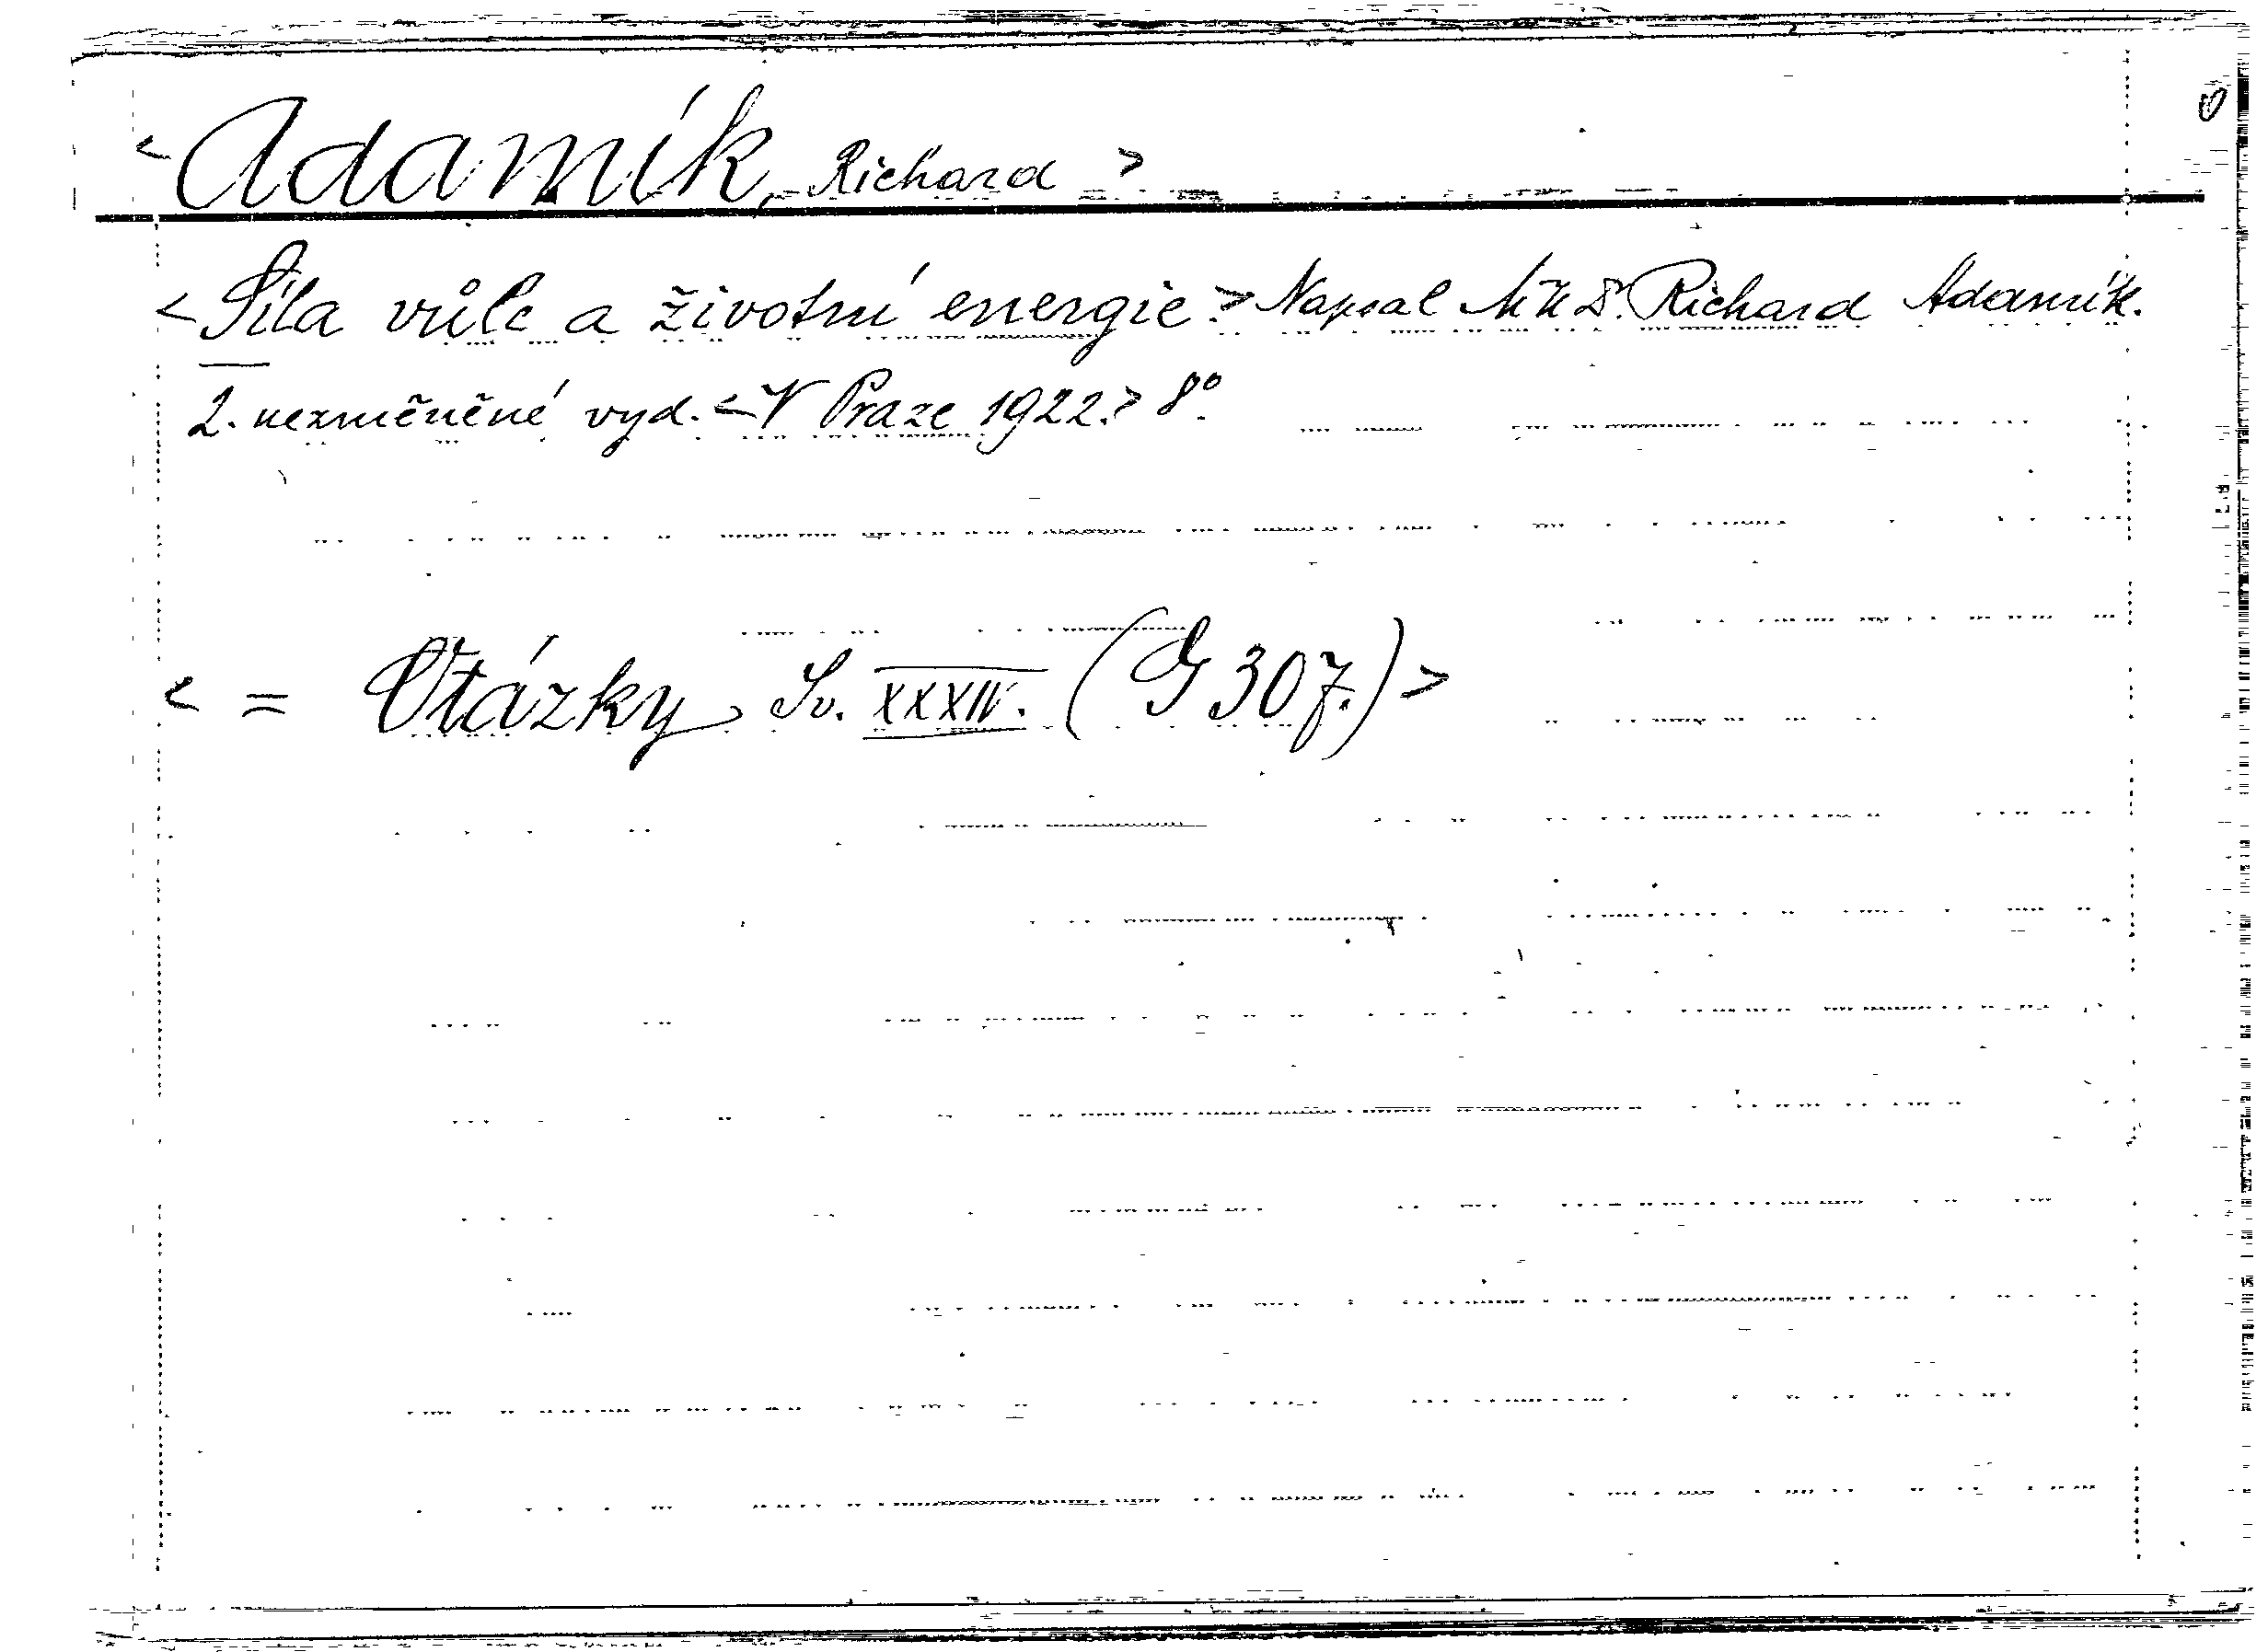 <Adamík, Richard>
<Síla vůle a životní energie.> Napsal MUDr. Richard Adamík.
2. nezměněné vyd. <V Praze 1922.> 8º.
<= Otázky Sv. XXXIV. (G 307.)>